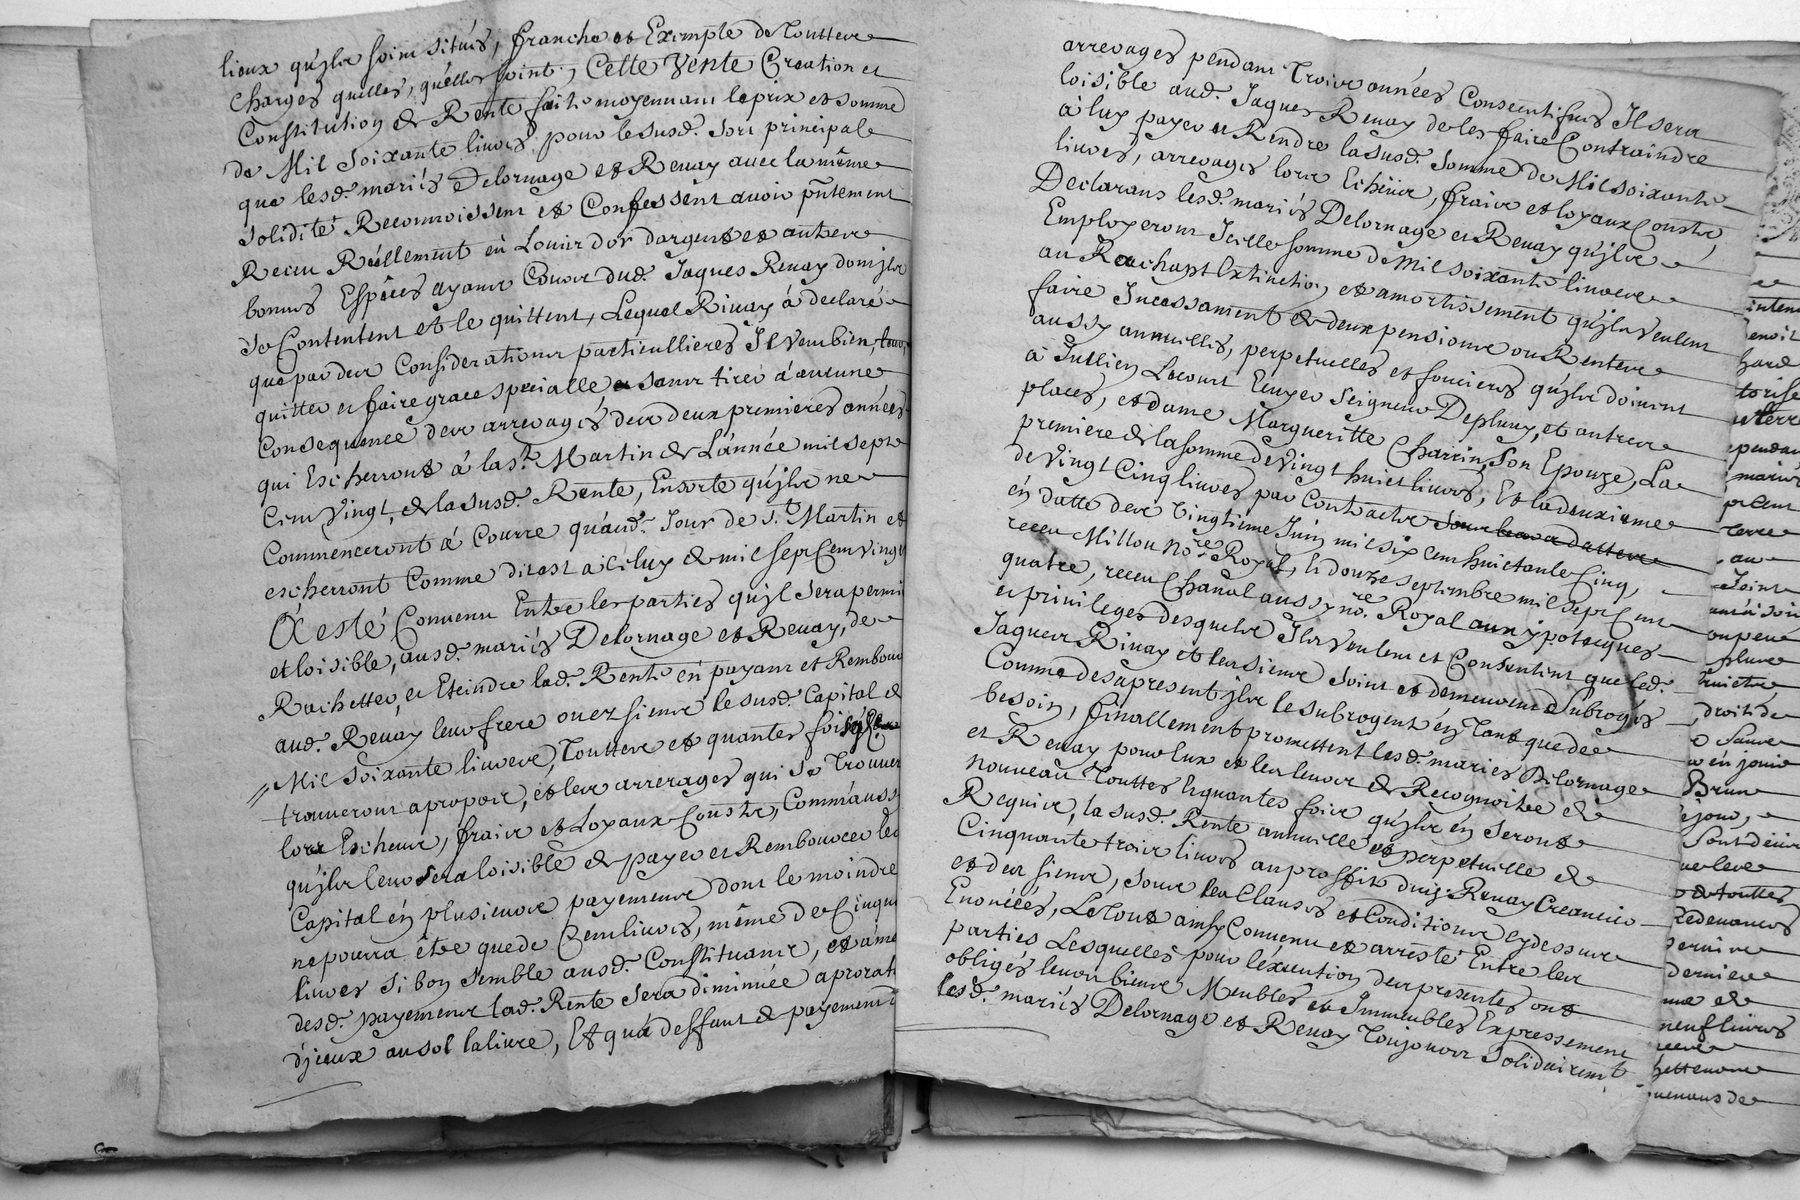 lieux qu'jls soint situés, franche et Exempte de Touttes
Charges quelles, qu'elles soint, Cette Vente Creation et
Constitution de Rente faite moyennant le prix et somme
de Mil Soixante livres pour le susd. Sort principal
que lesd. mariés Delornage et Renay avec la même
Solidité Reconnoissent et Confessent avoir pñtement
Receu Reéllement en Louis d'or d'argent et autres
bonnes Espèces ayant Cours dud. Jaques Renay dont jls
se Contentent et le quittent, Lequel Renay á declaré
que par des Considerations particullieres Il veu bien,
quitter et faire grace specialle, sans tirer á aucune
Consequence des arreragés des deux premieres années
qui Escherront á la st. Martin de L'année mil sept
Cent Vingt, de la susd. Rente, Ensorte qu'jls ne
Commenceront á Courre qu'aud. Jour de St. Martin et
escherront Comme dit est a Celuy de mil sept Cent vingt
A esté Convenu Entre les parties qu'jl sera permis
et loisible, ausd. mariés Delornage et Renay, de
Rachetter, et Eteindre lad. Rente en payant et Rembour
aud. Renay leur frere ou ez siens le susd. Capital de
Mil Soixante livres, Touttes et quantes fois
trouveront apropos, et les arrerages qui se Trouver
lors Escheus, frais et Loyaux Cousts, Comm'auss
qu'jls leur sera loisible de payer et Rembourcer led
Capital en plusieurs payements dont le moindre
ne pourra être que de Cent livres, même de Cinqu
livres si bon semble ausd. Constituants, et á me
desd. payements lad. Rente sera diminuée aprorata
d'jceux au sol la livre, Et qu'á deffaut de payement
arrerages pendant Trois années Consecutifves Il sera
loisible aud. Jaques Renay de les faire Contraindre
á luy payer et Rendre la susd. Somme de Mil soixante
livres, arrerages lors Echeus, frais et loyaux Cousts,
Declarans lesd. mariés Delornage et Renay qu'jls
Employeront Icelle somme de mil soixante livres
au Rachapt Extinction et amortissement qu'jls veulent
faire Incessament de deux pensions ou Rentes
aussy annuelles, perpetuelles et foncieres qu'jls doivent
á Jullien Lecourt Ecuyer Seigneur Depluvy, et autres
places, et dame Margueritte Charrin, son Epouze, La
premiere de la somme de Vingt huict livres, Et la deuxieme
de Vingt Cinq livres par Contracts
en datte des Vingtieme Juin mil six Cent huictante Cinq,
receu Millou no.re Royal, le douze septembre mil sept Cent
quatre, receu Chanal aussy no.re Royal aux ypotecques
et privileges desquels Ils veulent et Consentent que led.
Jaques Renay et les siens Soint et demeurent Subrogés
Comme des apresent jls le subrogent en Tant que de
besoin, finallement promettent lesd. mariés Delornage
et Renay pour Eux et les leurs de Recognoitre de
nouveau Touttes Et quantes fois qu'jls en seront
Requis, la susd. Rente annuelle et perpetuelle de
Cinquante trois livres au proffit dud. Renay Creancier
et des siens, sous les Clauses et Conditions cy dessus
Enoncées, Le Tout ainsy Convenu et arresté Entre les
parties Lesquelles pour l'exécution des presentes ont
obligés leurs biens Meubles et Immeubles Expressement
lesd. mariés Delornage et Renay Toujours Solidairemt
Brun
et touttes
Redevances
derniere
neuf livres